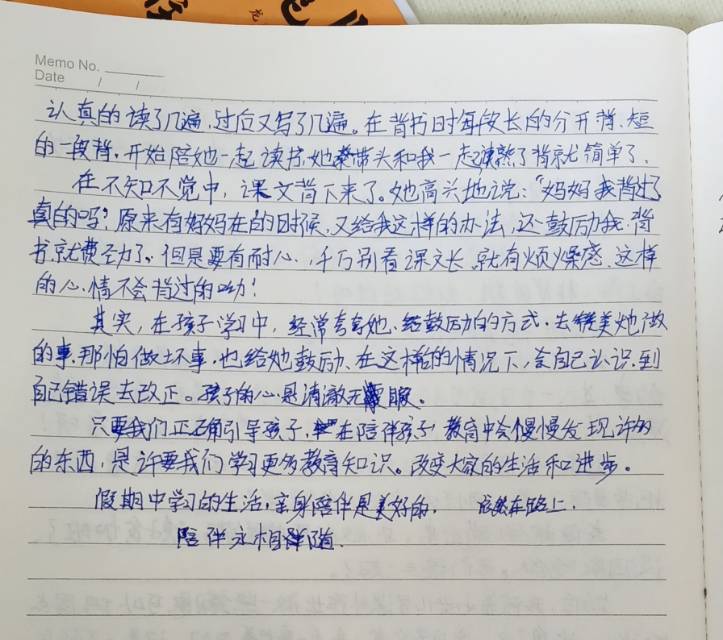 Memo No.
Date / /
认真的读了几遍,过后又写了几遍。在背书时每段长的分开背.短
的一段背.开始陪她一起读书.她带头和我一起读熟了背就简单了.
在不知不觉中,课文背下来了。她高兴地说:“妈妈我背过了
真的吗?原来有妈妈在的时候,又给我这样的办法,还鼓励我.背
书就费劲了.但是要有耐心.千万别看课文长.就有烦燥感.这样
的心.情不会背过的呦!
其实,在孩子学习中,经常夸夸她.给鼓励的方式.去赞美她做
的事.那怕做坏事,也给她鼓励.在这样的情况下,会自己认识到
自己错误去改正。孩子的心是清澈无暇.
只要我们正确引导孩子,在陪伴孩子教育中会慢慢发现许多
的东西,是许要我们学习更多教育知识。改变大家的生活和进步。
假期中学习的生活,亲身陪伴是美好的.在路上.
陪伴永相伴随.